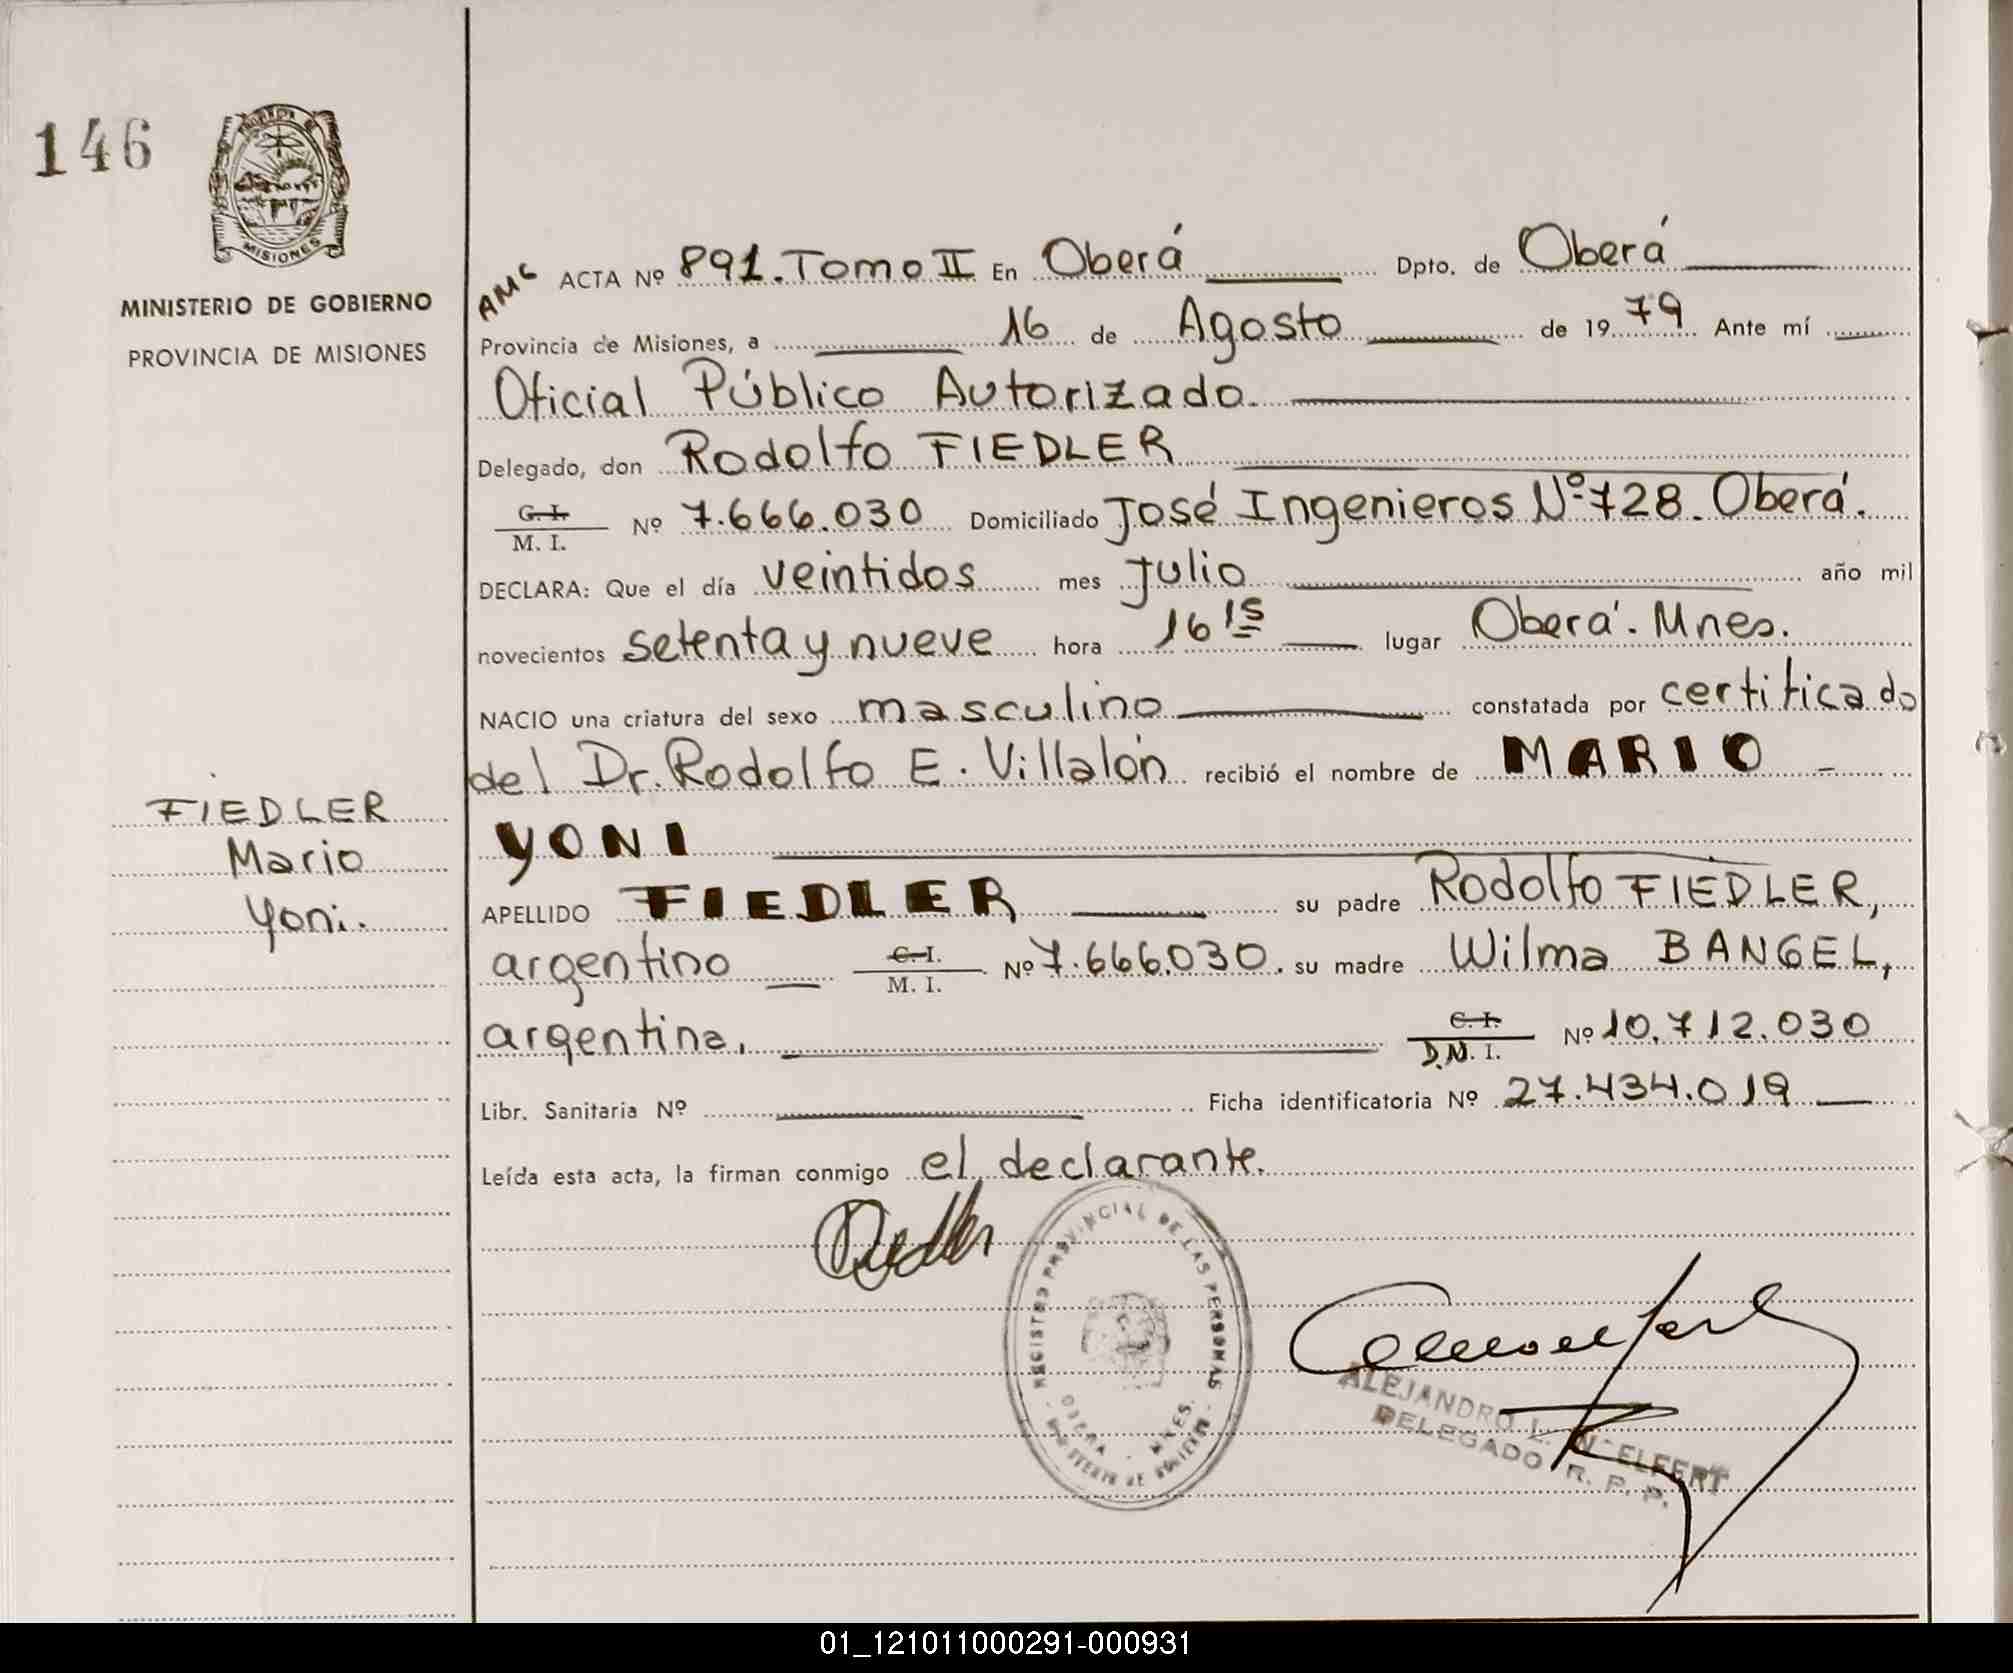 146
MISIONES
MINISTERIO DE GOBIERNO
PROVINCIA DE MISIONES
FIEDLER
Mario
Yoni.
AMC ACTA Nº 891. Tomo II En Oberá Dpto. de Oberá
Provincia de Misiones, a 16 de Agosto de 19 79 Ante mí
Oficial Público Autorizado.
Delegado, don Rodolfo FIEDLER
C. I. / M. I. Nº 7.666.030 Domiciliado José Ingenieros Nº 728. Oberá.
DECLARA: Que el día veintidos mes Julio año mil
novecientos setenta y nueve hora 16 15 lugar Oberá. Mnes.
NACIO una criatura del sexo masculino constatada por certificado
del Dr. Rodolfo E. Villalón recibió el nombre de MARIO
YONI
APELLIDO FIEDLER su padre Rodolfo FIEDLER,
argentino C. I. / M. I. Nº 7.666.030. su madre Wilma BANGEL,
argentina. C. I. / D.N. I. Nº 10.712.030
Libr. Sanitaria Nº Ficha identificatoria Nº 27.434.019
Leída esta acta, la firman conmigo el declarante.
REGISTRO PROVINCIAL DE LAS PERSONAS
OBERA - MNES.
MINISTERIO DE GOBIERNO
ALEJANDRO L.
DELEGADO R. P. P.
01_121011000291-000931